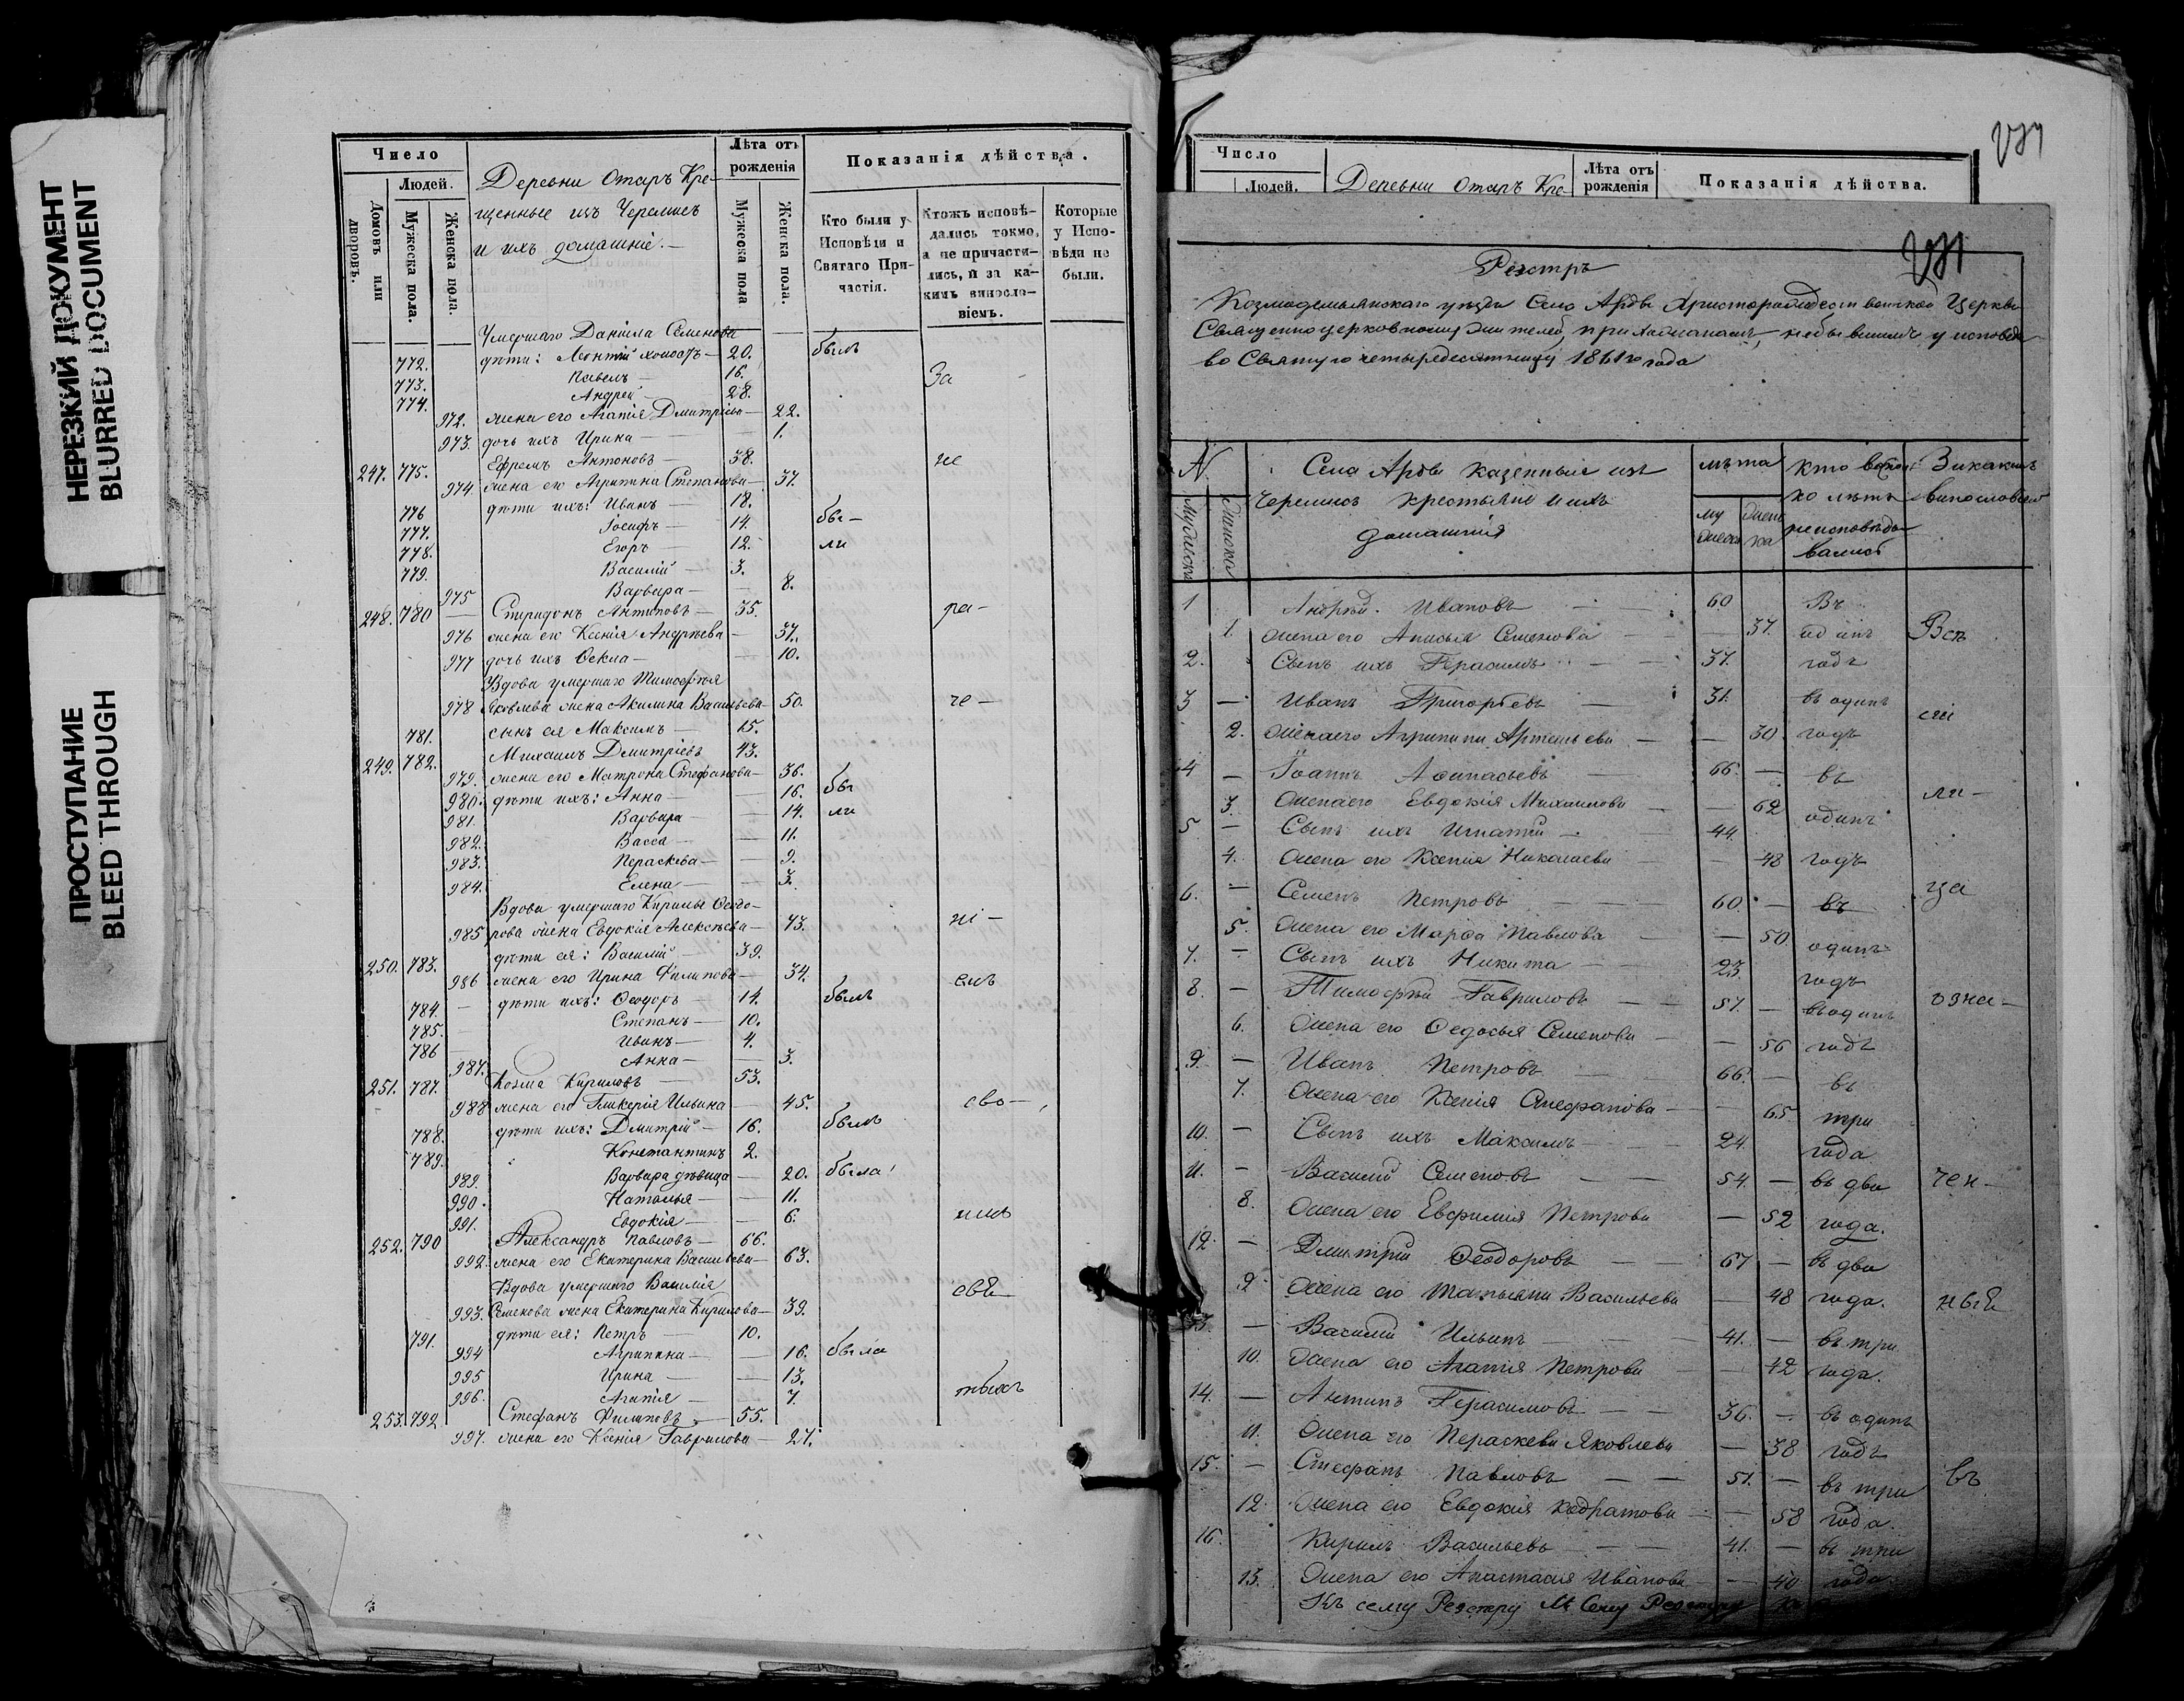 НЕРЕЗКИЙ ДОКУМЕНТ
BLURRED DOCUMENT
ПРОСТУПАНИЕ
BLEED THROUGH
Число
Людей.
Домовъ или дворовъ.
Мужеска пола.
Женска пола.
Деревни Отаръ Кре-
щенные изъ Черемисъ
и ихъ домашніе.
Лѣта отъ рожденія
Мужеска пола
Женска пола.
Показанія дѣйства.
Кто были у Исповѣди и Святаго При-частія.
Ктожъ исповѣ-дались токмо, а не причасти-лись, и за ка-кимъ винославіемъ.
Которые у Испо-вѣди не были.
Умершаго Даніила Семенова
772. дѣти: Леонтій холостъ — 20. былъ
773. Павелъ — 16. За
774. Андрей — 28.
972. жена его Агапія Дмитріева — 22.
973. дочь ихъ Ирина — 1.
247. 775. Ефремъ Антоновъ — 38. не
974. жена его Агрипина Степанова — 37.
776 дѣти ихъ: Иванъ — 18.
777. Іосифъ — 14. бы-
778. Егоръ — 12. ли
779. Василій — 3.
975 Варвара — 8.
248. 780 — Спиридонъ Антиповъ — 35. ра-
976 жена его Ксенія Андреева — 37.
977 дочь ихъ Ѳекла — 10.
Вдова умершаго Тимоѳея
978 Яковлева жена Акилина Васильева — 50. че-
781. сынъ ея Максимъ — 15.
249. 782. Михаилъ Дмитріевъ 43.
979. жена его Матрона Стефанова — 36.
980. дѣти ихъ: Анна — 16. бы
981. Варвара — 14. ли
982. Васса — 11.
983. Параскева — 9.
984. Елена — 3.
Вдова умершаго Кирилы Ѳеодо-
985 рова жена Евдокія Алексѣева — 73. ні-
250. 783. дѣти ея: Василій — 39.
986 жена его Ирина Филипова — 34. емъ
784. — дѣти ихъ: Ѳеодоръ — 14. былъ
785. Степанъ — 10.
786 Иванъ — 4.
987. Анна — 3.
251. 787. Козма Кириловъ 53.
988 жена его Гликерія Ильина — 45. сво-
788. дѣти ихъ: Дмитрій — 16. былъ
789. Константинъ 2.
989. Варвара дѣвица — 20. была
990. Наталья — 11.
991. Евдокія — 6.
252. 790 Александръ Павловъ — 66.
992. жена его Екатерина Васильева — 63.
Вдова умершаго Василія
993. Семенова жена Екатерина Кирилова — 39.
791. дѣти ея: Петръ — 10.
994 Агрипина — 16. была
995 Ирина — 13.
996. Агапія — 7.
253. 792 Стефанъ Филиповъ — 55.
997. жена его Ксенія Гаврилова — 27.
Число
Людей.
Деревни Отаръ Кре-
Лѣта отъ рожденія
Показанія дѣйства.
Реэстръ
Козмодемьянскаго уѣзда Села Арды Христорождественской Церкви
во Святую четыредесятницу 1861го года
N
Мужеска
Женска
Села Арды казенные изъ
Черемисъ крестьяне и ихъ
домашнія
лѣта
му жеска
женска
кто
ко лѣтъ
неисповѣды-
вался
За какимъ
винословіемъ
1 Андрей Ивановъ 60 Въ
1. жена его Анисья Семенова — 37. одинъ Всѣ
2. Сынъ ихъ Герасимъ — 37. годъ
3 — Иванъ Григорьевъ — 31. въ одинъ
2. жена его Агрипина Артемьева — 30 годъ
4 — Іоаннъ Аѳанасьевъ — 66. — въ
3. жена его Евдокія Михаилова — 62 одинъ ли-
5 — Сынъ ихъ Игнатій — 44.
4. жена его Ксенія Николаева — 48 годъ
6. — Семенъ Петровъ — 60. — въ ца
5. жена его Марѳа Павлова — 50 одинъ
7. — Сынъ ихъ Никита — 23. годъ
8. — Тимоѳей Гавриловъ — 57. — въ одинъ озна-
6. жена его Ѳедосья Семенова — 56 годъ
9 — Иванъ Петровъ 66. — въ
7. жена его Ксенія Стефанова — 65 три
10. — Сынъ ихъ Максимъ — 24. года
11. — Василій Семеновъ — 54. — въ два чен-
8. жена его Евфимія Петрова — 52 года.
12 — Дмитрій Ѳеодоровъ — 67 — въ два
9 жена его Татьяна Васильева — 48 года. ные
13. — Василій Ильинъ — 41. — въ три
10. жена его Агапія Петрова — 42 года.
14. — Антипъ Герасимовъ — 36. — въ одинъ
11. жена его Параскева Яковлева — 38 годъ
15. — Стефанъ Павловъ — 51. — въ три въ
12. жена его Евдокія Кодратова — 58 года.
16. Кирилъ Васильевъ — 41. — въ три
13. жена его Анастасія Иванова — 40 года.
Къ сему Реэстру